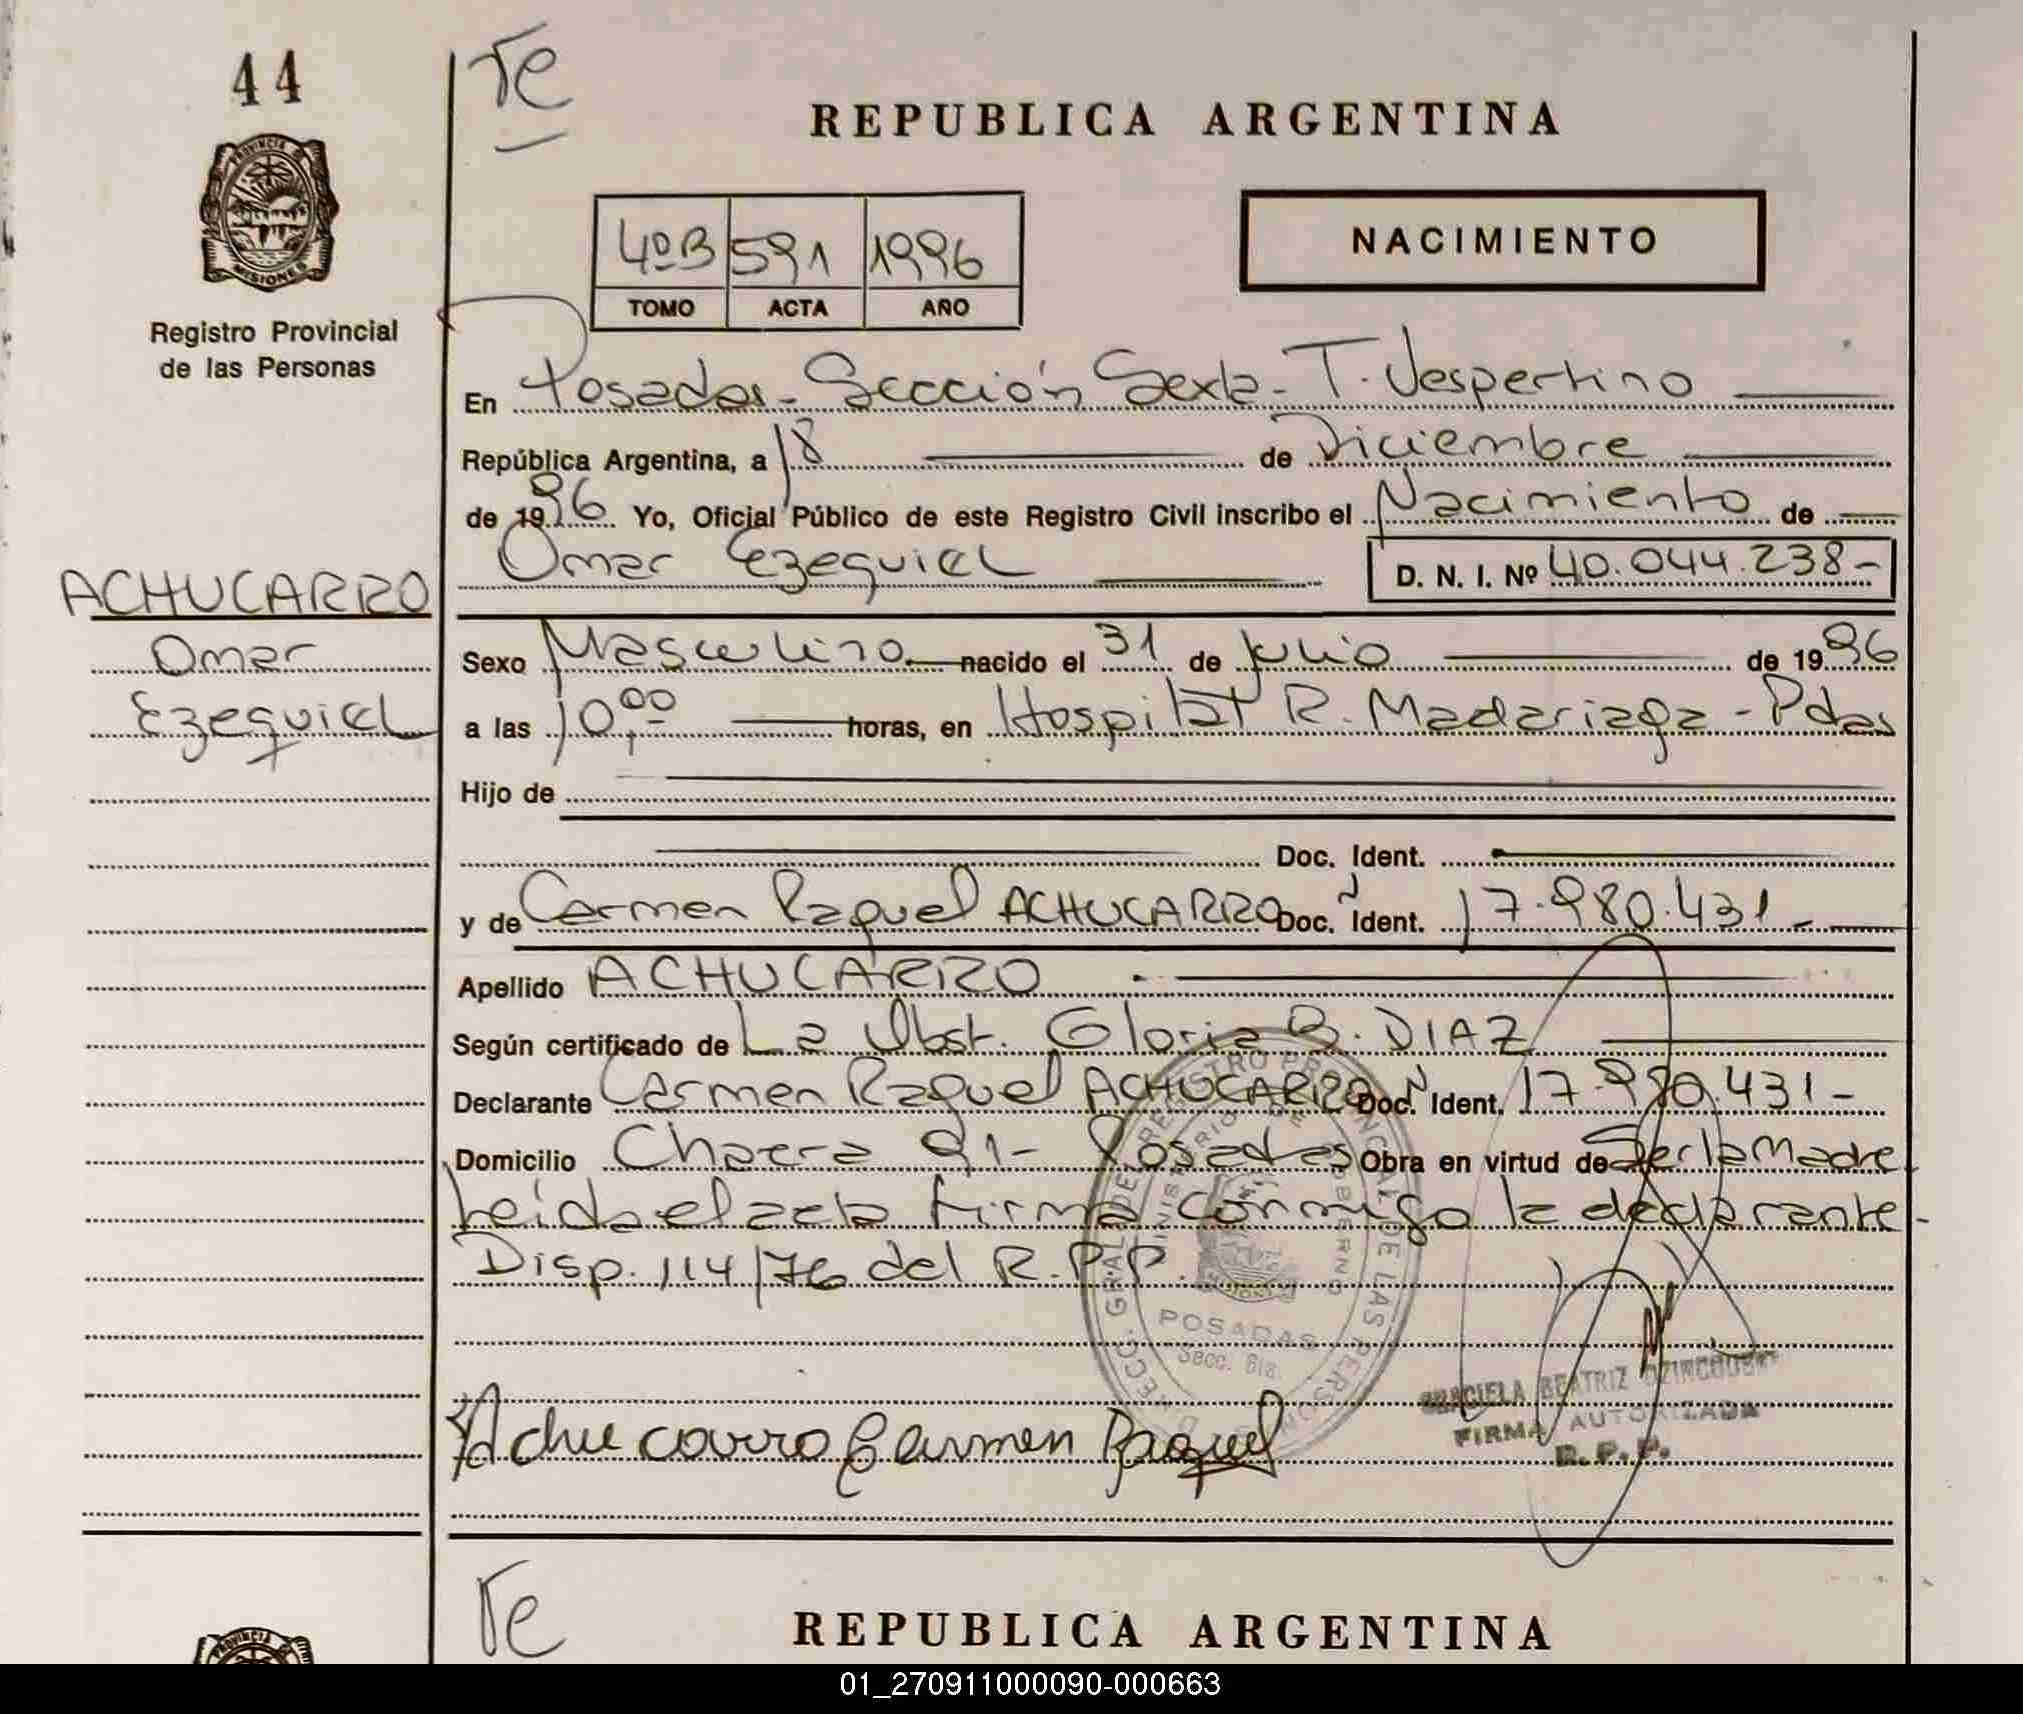 44
Te
REPUBLICA ARGENTINA
PROVINCIA DE
MISIONES
Registro Provincial
de las Personas
4ºB 591 1996
TOMO ACTA AÑO
NACIMIENTO
En Posadas - Sección Sexta - T. Vespertino
República Argentina, a 18 de Diciembre
de 1996 Yo, Oficial Público de este Registro Civil inscribo el Nacimiento de
Omar Ezequiel D. N. I. Nº 40.044.238-
ACHUCARRO
Omar
Ezequiel
Sexo Masculino nacido el 31 de Julio de 1996
a las 10,00 horas, en Hospital R. Madariaga - Pdas
Hijo de
Doc. Ident.
y de Carmen Raquel ACHUCARRO Doc. Ident. 17.980.431-
Apellido ACHUCARRO
Según certificado de La Obst. Gloria B. DIAZ
Declarante Carmen Raquel ACHUCARRO Doc. Ident. 17.980.431-
Domicilio Chacra 91- Posadas Obra en virtud de Ser la Madre
Leida el acta firma conmigo la declarante-
Disp. 114/76 del R.P.P.
DIRECC. GRAL. DE REGISTRO PROVINCIAL DE LAS PERSONAS
MINISTERIO DE GOBIERNO
POSADAS
Secc. 6ta.
Achucarro Carmen Raquel
GRACIELA BEATRIZ
FIRMA AUTORIZADA
R.P.P.
Te
REPUBLICA ARGENTINA
PROVINCIA
01_270911000090-000663